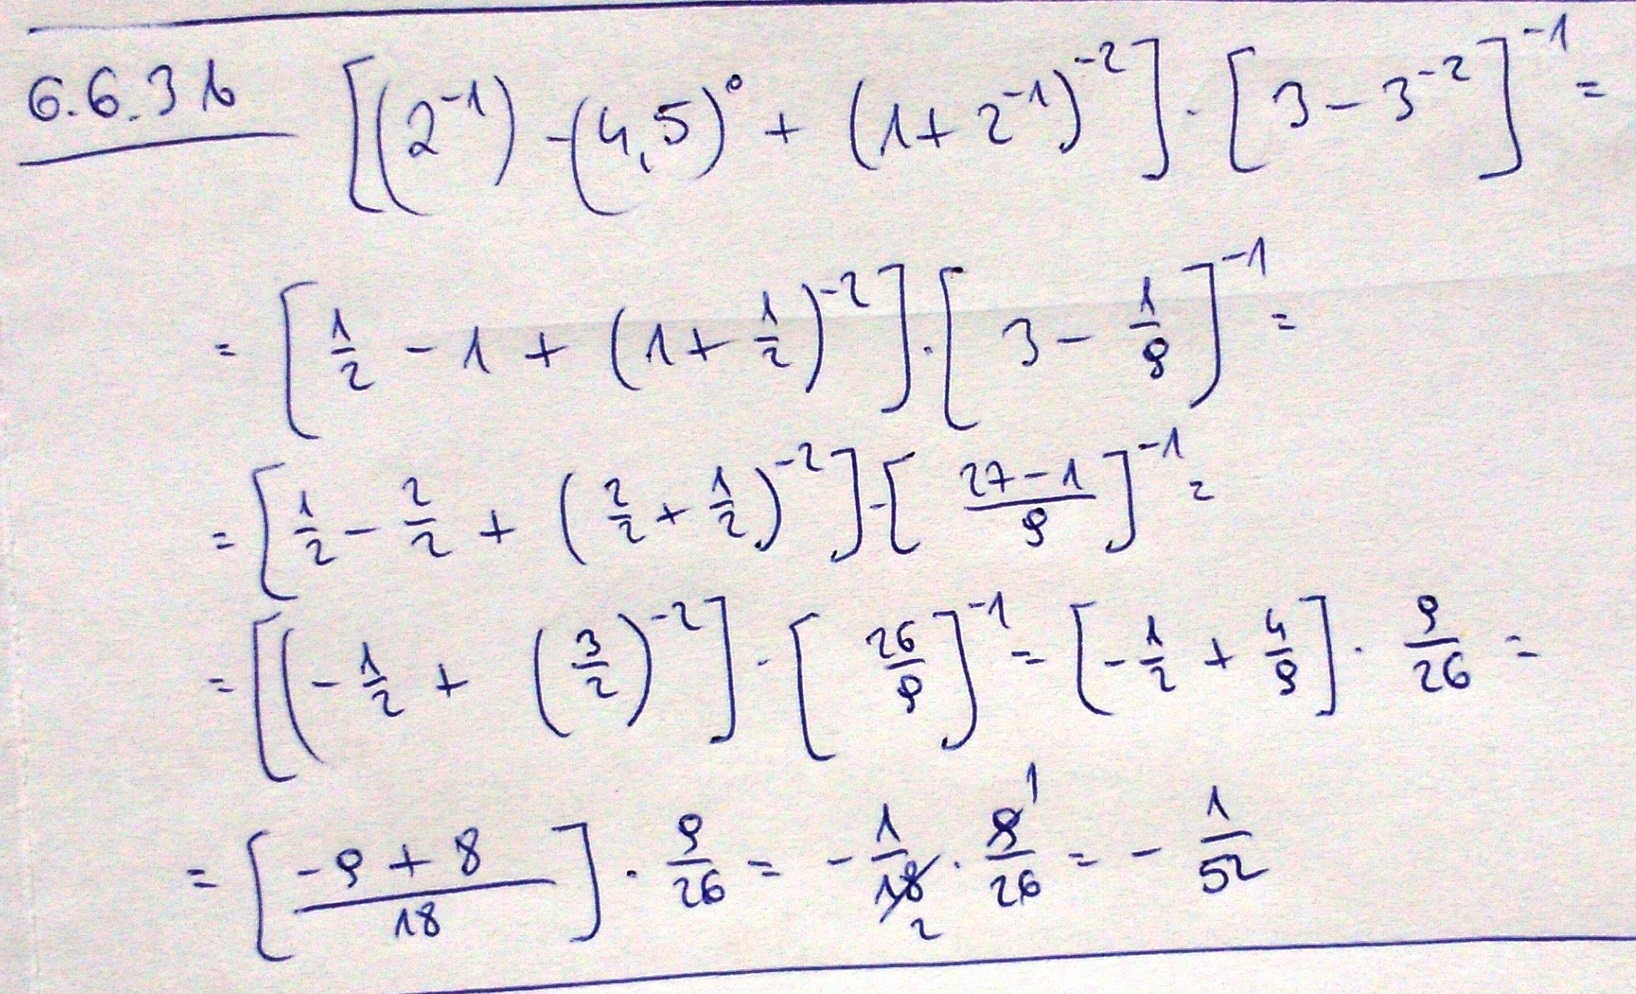 6.6.3b [(2⁻¹) - (4,5)⁰ + (1 + 2⁻¹)⁻²] · [3 - 3⁻²]⁻¹ =
= [1/2 - 1 + (1 + 1/2)⁻²] · [3 - 1/9]⁻¹ =
= [1/2 - 2/2 + (2/2 + 1/2)⁻²] · [(27 - 1)/9]⁻¹ =
= [(-1/2 + (3/2)⁻²] · [26/9]⁻¹ = [-1/2 + 4/9] · 9/26 =
= [(-9 + 8)/18] · 9/26 = -1/18 2 · 9 1/26 = -1/52